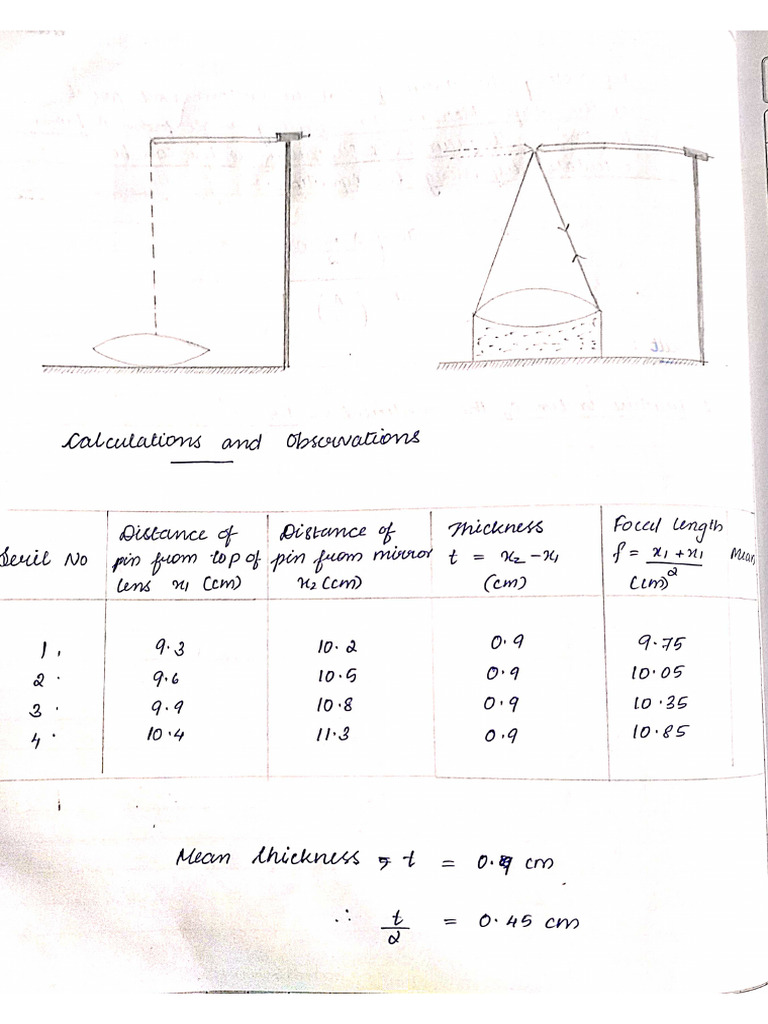 Calculations and Observations
Seril No
Distance of
pin from top of
lens x1 (cm)
Distance of
pin from mirror
x2 (cm)
Thickness
t = x2 - x1
(cm)
Focal length
f = x1 + x1 / 2
(cm)
Mean
1. 9.3 10.2 0.9 9.75
2. 9.6 10.5 0.9 10.05
3. 9.9 10.8 0.9 10.35
4. 10.4 11.3 0.9 10.85
Mean thickness, t = 0.9 cm
∴ t/2 = 0.45 cm